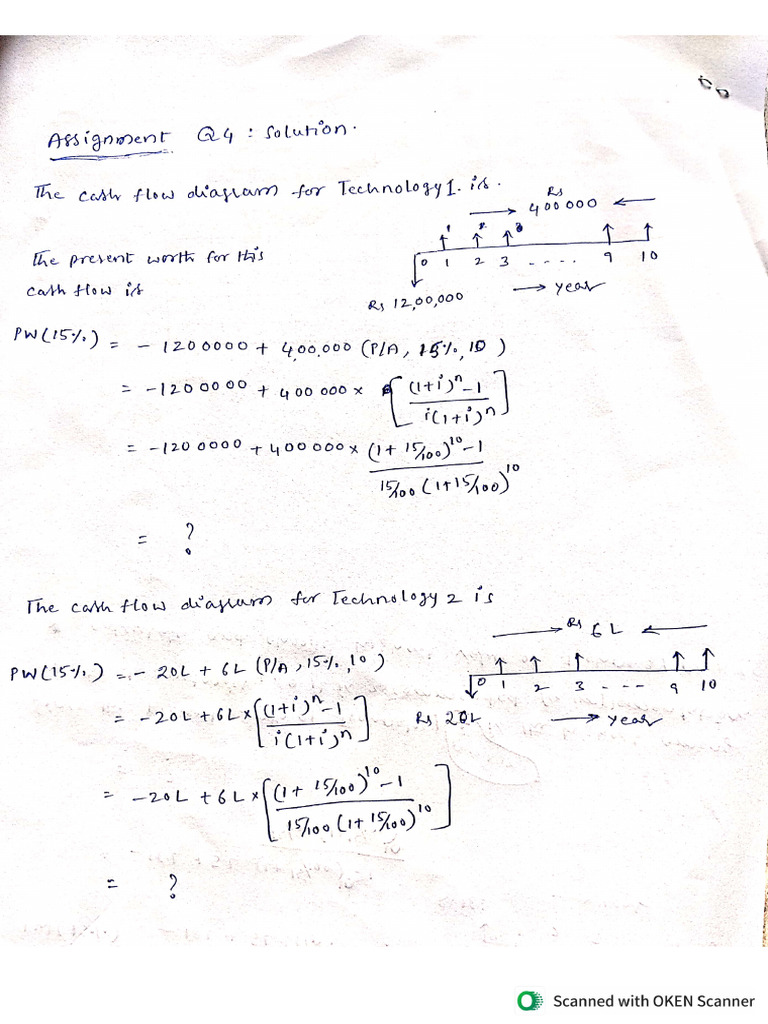 Assignment Q4 : Solution.
The cash flow diagram for Technology 1. is.
Rs
→ 400000 ←
1 2 3
0 1 2 3 - . . . . 9 10
Rs 12,00,000 → year
The present worth for this
cash flow is
PW(15%) = - 1200000 + 4,00,000 (P/A, 15%, 10)
= -1200000 + 400000 × [ (1+i)^n - 1 / i(1+i)^n ]
= -1200000 + 400000 × (1 + 15/100)^10 - 1 / 15/100 (1+15/100)^10
= ?
The cash flow diagram for Technology 2 is
→ Rs 6L ←
0 1 2 3 - - - - 9 10
Rs 20L → year
PW(15%) = - 20L + 6L (P/A, 15%, 10)
= -20L + 6L × [ (1+i)^n - 1 / i(1+i)^n ]
= -20L + 6L × [ (1 + 15/100)^10 - 1 / 15/100 (1 + 15/100)^10 ]
= ?
Scanned with OKEN Scanner